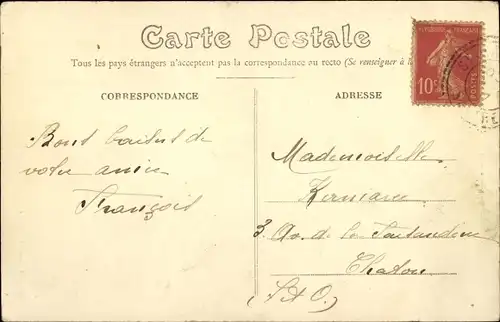 Carte Postale
Tous les pays étrangers n'acceptent pas la correspondance au recto (Se renseigner à la
CORRESPONDANCE
ADRESSE
REPUBLIQUE FRANÇAISE
10c
POSTES
Bons baisers de
votre amie
François
Mademoiselle
3. Av. de la
Chatou
(S & O.)